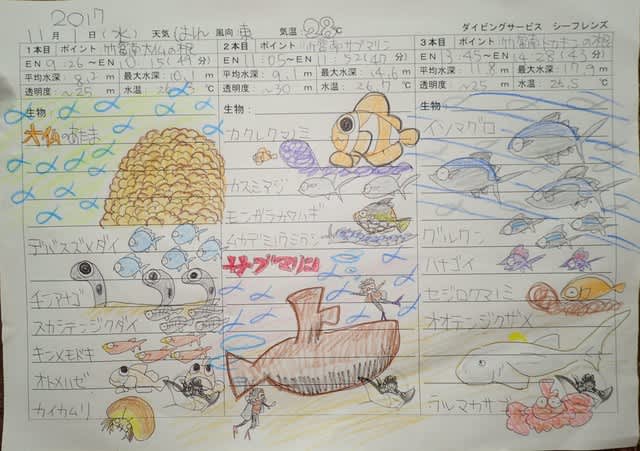 2017
11月1日(水) 天気 はれ 風向 東 気温 28℃
ダイビングサービス シーフレンズ
1本目 ポイント 竹富南大仏の根
EN 9:26〜EX 10:15(49分)
平均水深: 8.2m 最大水深: 10.1m
透明度: 〜25m 水温: ℃
生物:
大仏のあたま
デバスズメダイ
チンアナゴ
スカシテンジクダイ
キンメモドキ
オトメハゼ
カイカムリ
2本目 ポイント 竹富南サブマリン
EN 11:05〜EN 11:52(47分)
平均水深: 9.1m 最大水深: 14.6m
透明度: 〜30m 水温: 26.7℃
生物:
カクレクマノミ
カスミアジ
モンガラカワハギ
ムカデミノウミウシ
サブマリン
3本目 ポイント 竹富南トカキンの根
EN 13:45〜EN 14:28(43分)
平均水深: 11.8m 最大水深: 17.9m
透明度: 〜25m 水温: 26.5℃
生物:
イソマグロ
グルクン
ハナゴイ
セジロクマノミ
オオテンジクザメ
ウルマカサゴ